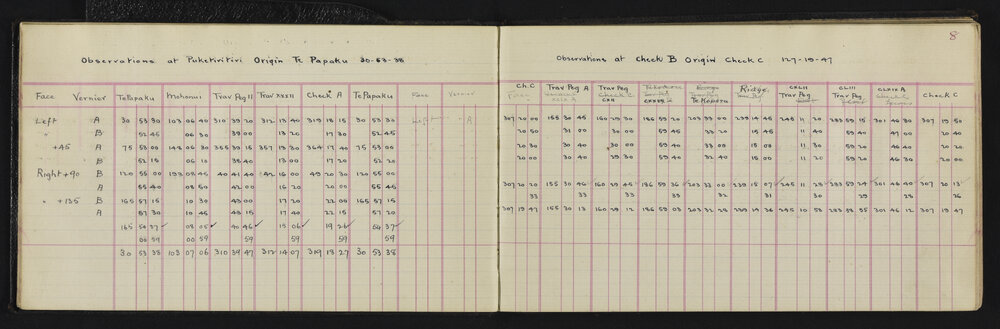 8
Observations at Puketiritiri Origin Te Papaku 30-53-38
Face Vernier Te Papaku Mohonui Trav Peg II Trav XXXII Check A Te Papaku Face Vernier
Left A 30 53 30 103 06 40 310 39 20 312 13 40 319 18 15 30 53 30 Left A
" B 52 45 06 30 39 00 13 20 17 30 52 45
+45 A 75 53 00 148 06 30 355 39 15 357 13 30 364 17 40 75 53 00
" B 52 15 06 10 38 40 13 00 17 20 52 20
Right +90 B 120 55 00 193 08 45 40 41 40 42 16 00 49 20 30 120 55 00
A 55 40 08 50 42 00 16 20 20 00 55 45
" +135 B 165 57 15 10 30 43 00 17 20 22 00 165 57 15
A 57 30 10 45 43 15 17 40 22 15 57 20
165 54 37 08 05 40 46 15 06 19 26 54 37
00 59 00 59 59 59 59 59
30 53 38 103 07 06 310 39 47 312 14 07 319 18 27 30 53 38
Observations at Check B Origin Check C 127-19-47
Ch. C Trav Peg A Trav Peg Ridge CXLII CLIII CLXIX A Check C
Check C CXX Te Kopuru Trav Peg Trav Peg
307 20 50 155 30 45 160 29 15 186 59 20 203 33 00 239 14 45 245 11 20 283 59 15 301 46 30 307 19 50
20 50 31 00 30 00 59 40 33 20 15 45 11 40 59 40 47 00 20 40
20 30 30 40 30 00 59 40 33 00 15 00 11 30 59 20 46 40 20 30
20 00 30 40 29 30 59 40 32 40 15 00 11 20 59 20 46 30 20 00
307 20 20 155 30 46 160 29 45 186 59 36 203 33 00 239 15 07 245 11 28 283 59 24 301 46 40 307 20 13
33 33 33 33 32 31 30 29 28 26
307 19 47 155 30 13 160 29 12 186 59 03 203 32 28 239 14 36 245 10 58 283 58 55 301 46 12 307 19 47